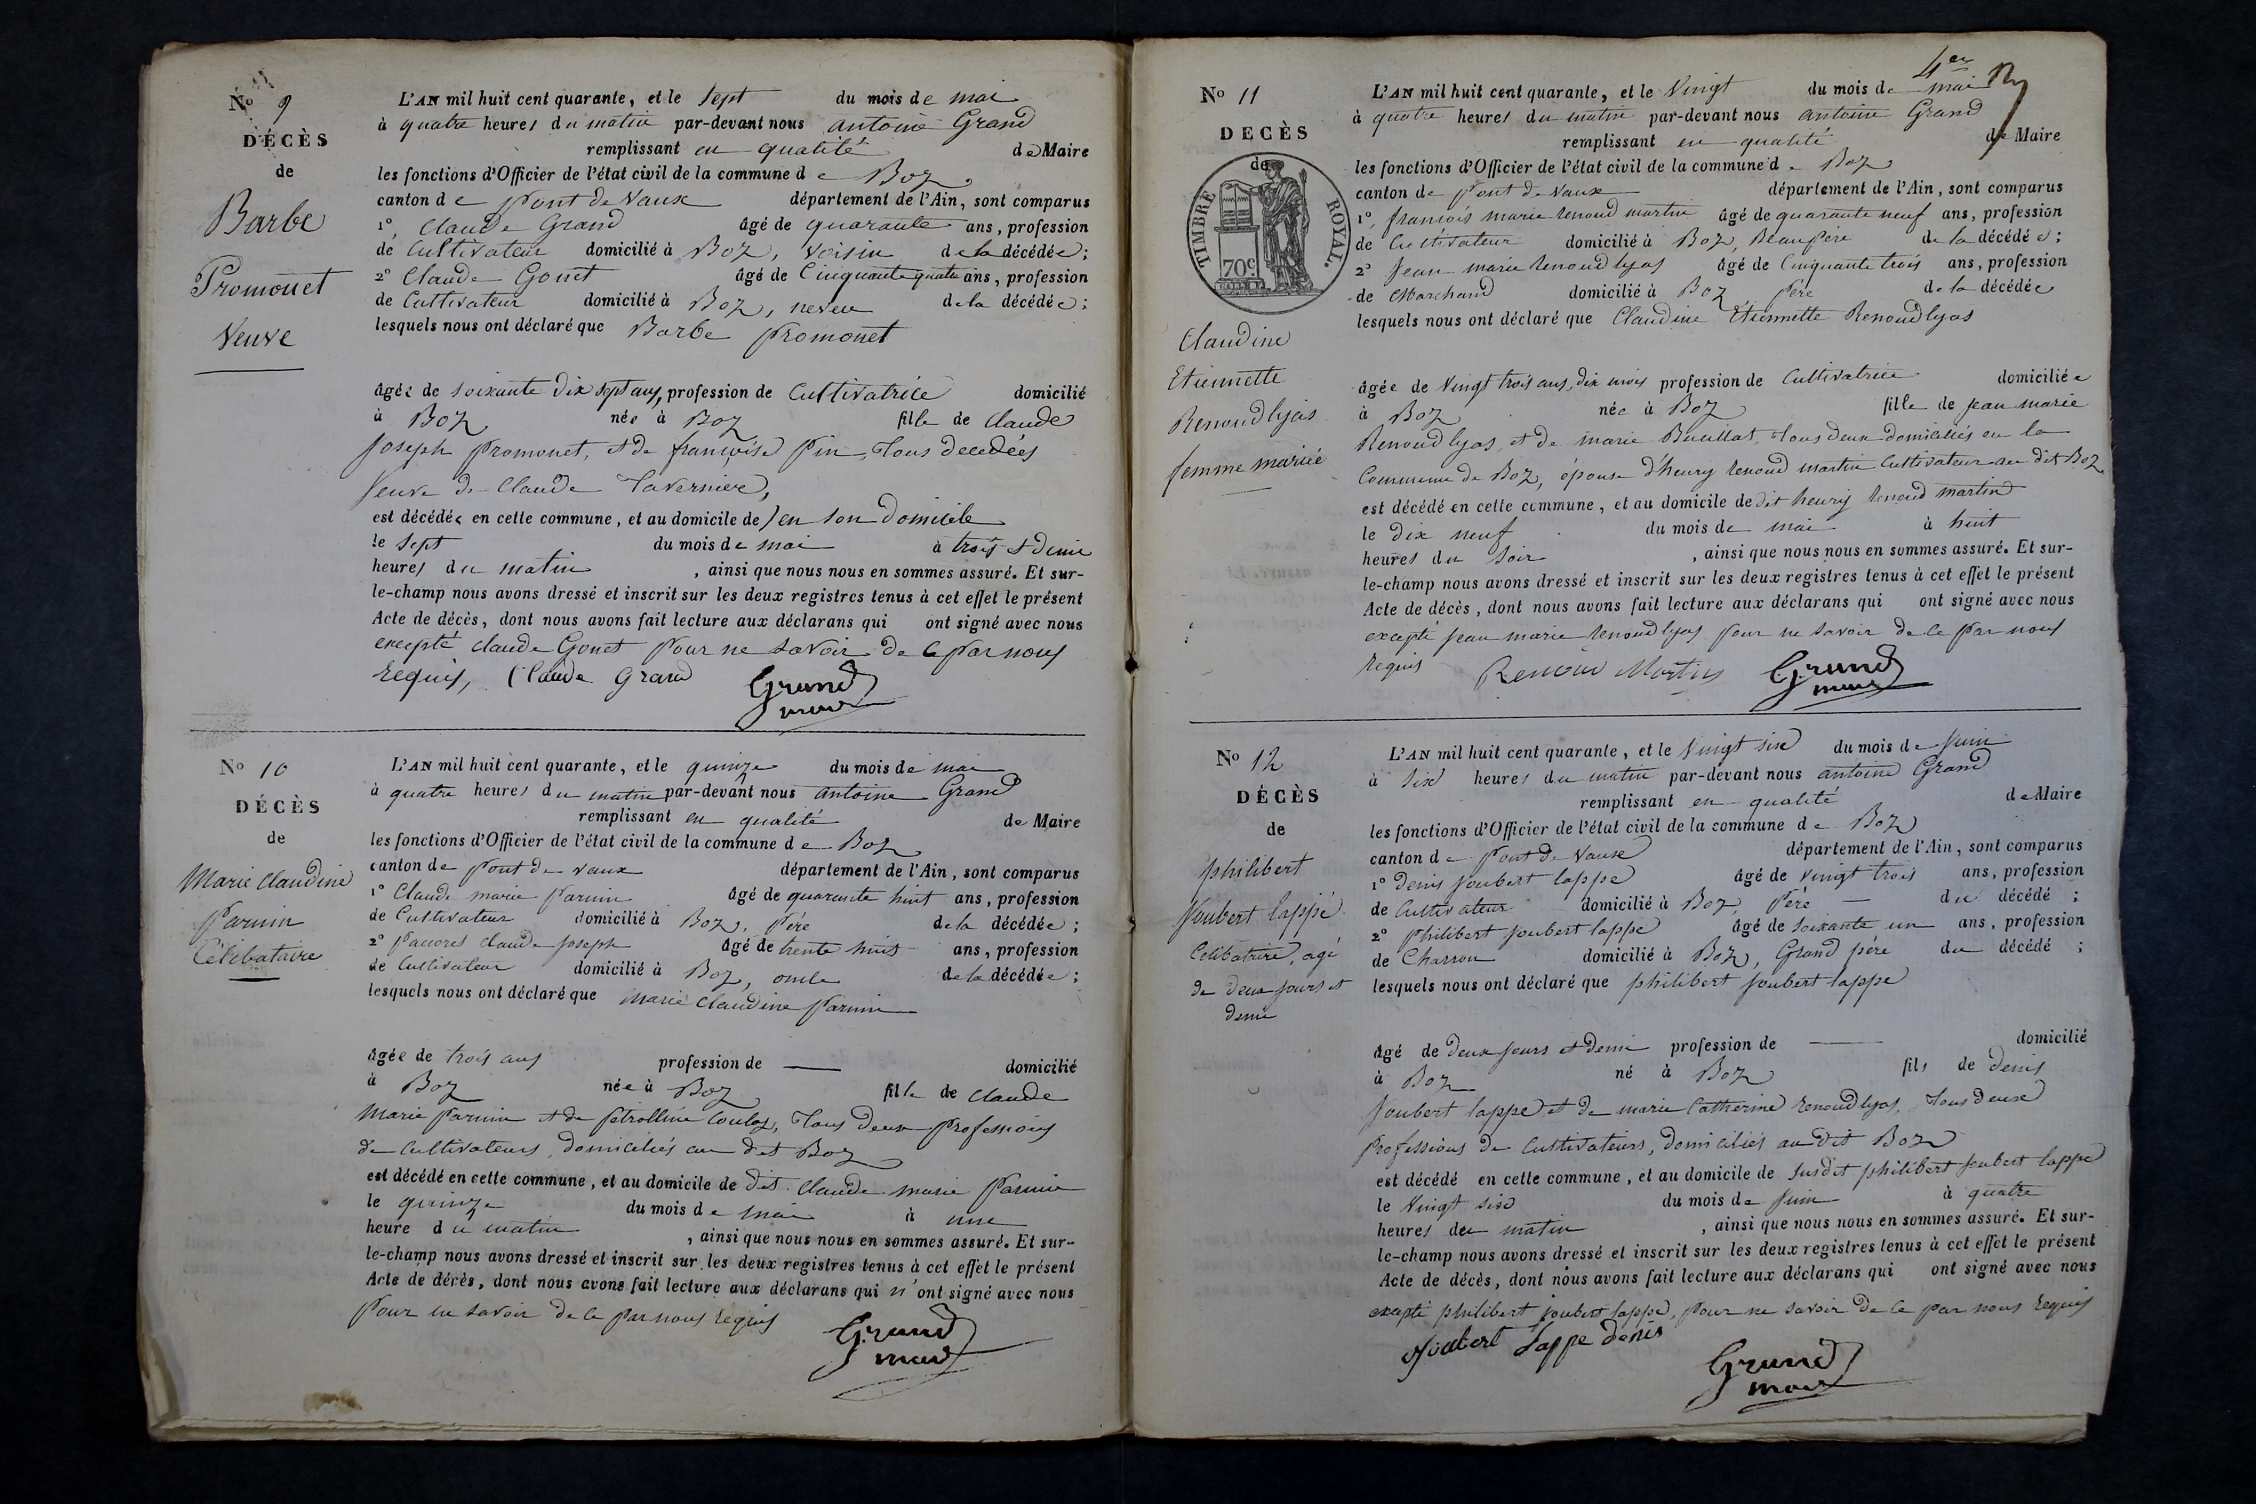 No 9
DÉCÈS
de
Barbe
Promonet
Veuve
L'AN mil huit cent quarante, et le Sept du mois de mai
à quatre heures du matin par-devant nous antoine Grand
remplissant en qualité de Maire
les fonctions d'Officier de l'état civil de la commune de Boz
canton de Pont de Vaux département de l'Ain, sont comparus
1o, Claude Grand âgé de quarante ans, profession
de Cultivateur domicilié à Boz, voisin de la décédée;
2o Claude Gonet âgé de Cinquante quatre ans, profession
de Cultivateur domicilié à Boz, neveu de la décédée;
lesquels nous ont déclaré que Barbe Promonet
âgée de soixante dix sept ans, profession de Cultivatrice domicilié
à Boz née à Boz fille de Claude
Joseph Promonet, et de françoise Pin, Tous decedés
Veuve de Claude Tavernier,
est décédée en cette commune, et au domicile de / en son Domicile
le Sept du mois de mai à trois et demie
heures du matin, ainsi que nous nous en sommes assuré. Et sur-
le-champ nous avons dressé et inscrit sur les deux registres tenus à cet effet le présent
Acte de décès, dont nous avons fait lecture aux déclarans qui ont signé avec nous
excepté Claude Gonet Pour ne savoir de ce par nous
Requis, Claude Grand Grand
maire
No 10
DÉCÈS
de
Marie Claudine
Parnin
Célibataire
L'AN mil huit cent quarante, et le quinze du mois de mai
à quatre heures du matin par-devant nous antoine Grand
remplissant en qualité de Maire
les fonctions d'Officier de l'état civil de la commune de Boz
canton de Pont de vaux département de l'Ain, sont comparus
1o Claude marie Parnin âgé de quarante huit ans, profession
de Cultivateur domicilié à Boz, Père de la décédée;
2o Pacoret Claude Joseph âgé de trente huit ans, profession
de Cultivateur domicilié à Boz, oncle de la décédée;
lesquels nous ont déclaré que Marie Claudine Parnin
âgée de trois ans profession de — domicilié
à Boz née à Boz fille de Claude
Marie Parnin et de Pétrolline Couloz, Tous Deux Professions
de Cultivateurs, domiciliés au dit Boz
est décédé en cette commune, et au domicile de dit Claude marie Parnin
le quinze du mois de mai à une
heure du matin, ainsi que nous nous en sommes assuré. Et sur-
le-champ nous avons dressé et inscrit sur les deux registres tenus à cet effet le présent
Acte de décès, dont nous avons fait lecture aux déclarans qui n'ont signé avec nous
Pour ne savoir de ce par nous requis
Grand
maire
4er
No 11
DECÈS
de
TIMBRE ROYAL.
70c
Claudine
Etiennette
Renoud lyas
femme mariée
L'AN mil huit cent quarante, et le Vingt du mois de mai
à quatre heures du matin par-devant nous antoine Grand
remplissant en qualité de Maire
les fonctions d'Officier de l'état civil de la commune de Boz
canton de Pont de Vaux département de l'Ain, sont comparus
1o, francois marie Renoud martin âgé de quarante neuf ans, profession
de Cultivateur domicilié à Boz, Beaupère de la décédée;
2o Jean marie Renoud lyas âgé de Cinquante trois ans, profession
de Marchand domicilié à Boz Père de la décédée
lesquels nous ont déclaré que Claudine Etiennette Renoud lyas
âgée de Vingt trois ans, dix mois profession de Cultivatrice domiciliée
à Boz née à Boz fille de Jean marie
Renoud lyas, et de marie Buillat, Tous deux domiciliés en la
Commune de Boz, épouse d'henry Renoud martin Cultivateur au dit Boz
est décédé en cette commune, et au domicile de dit henry Renoud martin
le Dix neuf du mois de mai à huit
heures du Soir, ainsi que nous nous en sommes assuré. Et sur-
le-champ nous avons dressé et inscrit sur les deux registres tenus à cet effet le présent
Acte de décès, dont nous avons fait lecture aux déclarans qui ont signé avec nous
excepté Jean marie Renoud lyas pour ne savoir de ce par nous
Requis Renoud Martin Grand
maire
No 12
DÉCÈS
de
Philibert
Joubert lappé
Célibataire, agé
de deux jours et
demie
L'AN mil huit cent quarante, et le Vingt six du mois de Juin
à Six heures du matin par-devant nous antoine Grand
remplissant en qualité de Maire
les fonctions d'Officier de l'état civil de la commune de Boz
canton de Pont de Vaux département de l'Ain, sont comparus
1o Denis Joubert lappe âgé de vingt trois ans, profession
de Cultivateur domicilié à Boz, Père — du décédé;
2o Philibert Joubert lappe âgé de soixante un ans, profession
de Charron domicilié à Boz, Grand père du décédé;
lesquels nous ont déclaré que Philibert Joubert lappe
âgé de deux jours et demi profession de — domicilié
à Boz né à Boz fils de Denis
Joubert lappe et de marie Catherine Renoud lyas, Tous deux
Professions de Cultivateurs, domiciliés au dit Boz
est décédé en cette commune, et au domicile de Susdit Philibert Joubert lappe
le Vingt six du mois de Juin à quatre
heures du matin, ainsi que nous nous en sommes assuré. Et sur-
le-champ nous avons dressé et inscrit sur les deux registres tenus à cet effet le présent
Acte de décès, dont nous avons fait lecture aux déclarans qui ont signé avec nous
excepté Philibert Joubert lappe, pour ne savoir de ce par nous Requis
Joubert Lappe denis
Grand
maire